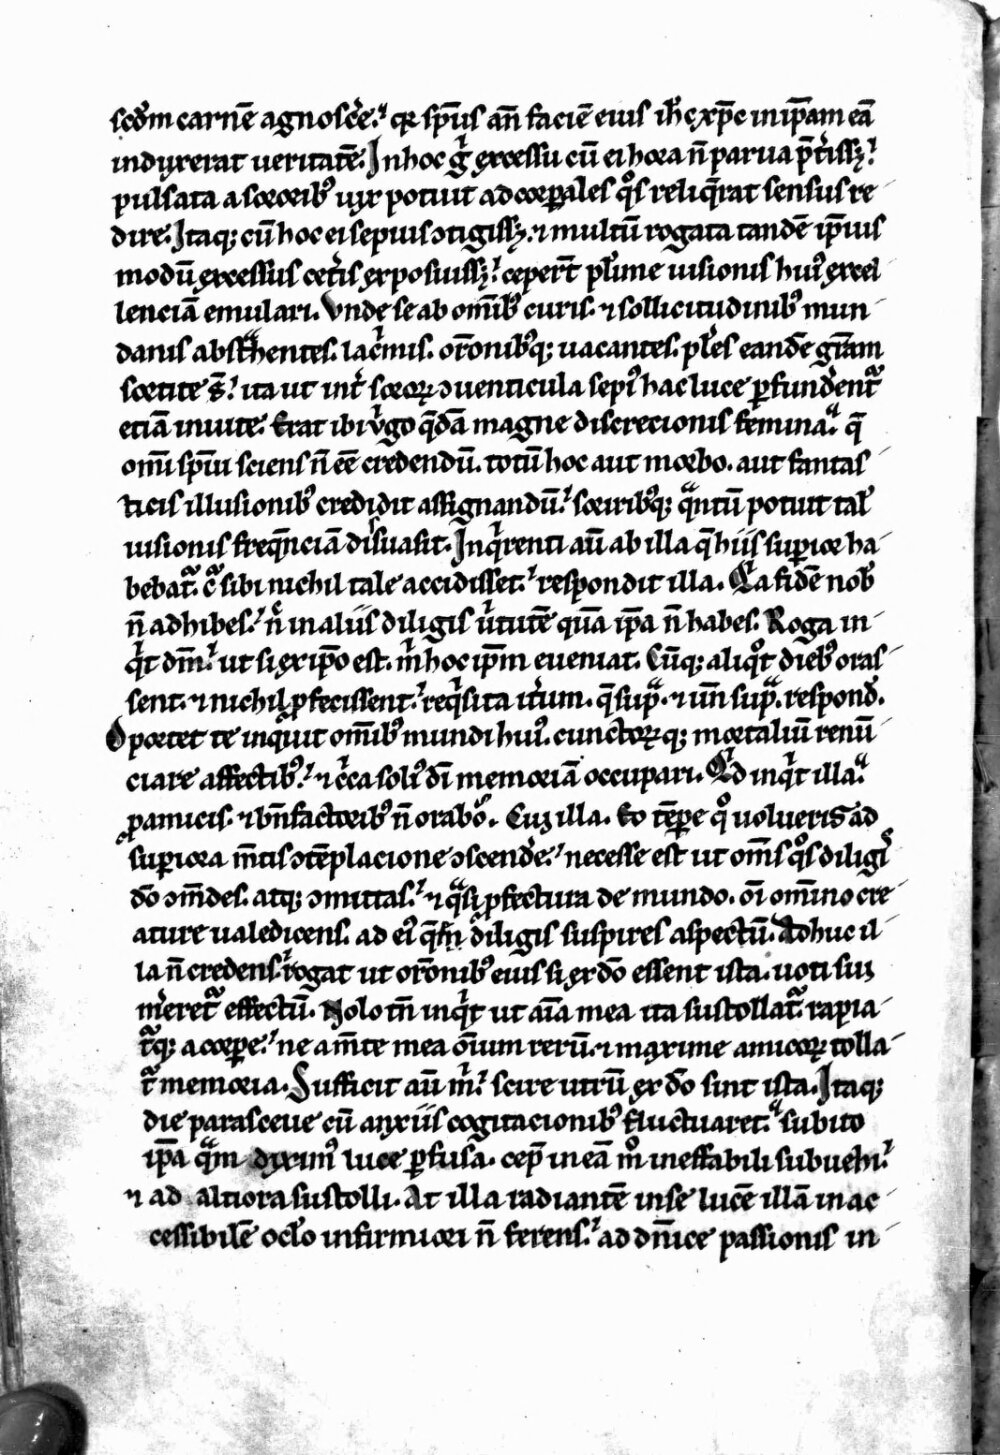 scd̄m carnē agnosc̄e. qr sp̄us an̄ faciē eius ih̄c xp̄c in ip̄am eā
induxerat veritatē. In hoc g̊ excessu cū ei hora n̄ parua p̄t̄issꝫ.
pulsata a sororib᷒ vix potuit ad corꝑales q̊s reliq̄rat sensus re
dire. Itaqꝫ cū hoc ei sepius ꝯtigissꝫ. ⁊ multū rogata tandē ip̄ius
modū excessus cet̄is exposuissꝫ. ceper̄t pl̄ime uisionis hui᷒ excel
lenciā emulari. Vnde se ab om̄ib᷒ curis. ⁊ sollicitudinib᷒ mun
danis abstᷓhentes. lac̄mis. or̄onib᷒qꝫ uacantes. pl̄es eandē gr̄am
sortite s̄. ita ut int̄ soroꝝ ꝯuenticula sepi᷒ hac luce ꝑfund̄entᷓ
etiā inuite. Erat ibi v̊go q̄dā magne discrecionis feminaᷓ. q̄
om̄i sp̄ui sciens n̄ ee̅ credendū. totū hoc aut morbo. aut fantas
ticis illusionib᷒ credidit assignandū. soroib᷒qꝫ qᷓntū potuit tal̄
uisionis freq̄nciā disuasit. Inq̊renti aū ab illa q̄ hiis superior ha
bebatᷓ. cᷓ sibi nichil tale accidisset. respondit illa. Qᷓa fidē nob̄
n̄ adhibes. n̊ in aliis diligis v̊tutē quā ip̄a n̄ habes. Roga in
q̊t dn̄m. ut si ex ip̄o est. m̊ hoc ip̄m eueniat. Cūqꝫ aliq̊t dieb᷒ oras
sent. ⁊ nichil ꝓfecissent. req̊sita it̄um. q̄ supᷓ. ⁊ un̄ supᷓ. respond̄.
Oportet te inquit om̄ib᷒ mundi hui᷒. cunctoꝝqꝫ mortaliū renū
ciare affectib᷒. ⁊ c̊ca soli᷒ dī memoriā occupari. Qᷓd inq̊t illaᷓ.
ꝓ amicis. ⁊ bn̄factorib᷒ n̄ orabo᷒. Cui illa. Eo tēꝑe q̊ uolueris ad
superiora m̄tis ꝯtēplacione ꝯscend̄e. necesse est ut om̄s q̊s diligis
dō om̄des. atqꝫ ꝯmittas. ⁊ qᷓsi ꝓfectura de mundo. oī om̄ino cre
ature ualedicens. ad ei᷒ quē diligis suspires aspectū. Adhuc il
la n̄ credens. rogat ut or̄onib᷒ eius si ex dō essent ista. uoti sui
m̄eretᷓ effectū. Nolo tn̄ inq̊t ut aīa mea ita sustollatᷓ. rapia
tᷓqꝫ a corꝑe. ne a m̄te mea om̄ium rerū. ⁊ maxime amicoꝝ tolla
tᷓ memoria. Sufficit aū m̊ scire utrū ex dō sint ista. Itaqꝫ
die parasceue cū anxiis cogitacionib᷒ fluctuaret. subito
ip̄a qᷓm diximus luce ꝑfusa. cep̄ in eā m̊ ineffabili subuehi.
⁊ ad altiora sustolli. At illa radiantē in se lucē illā inac
cessibilē oc̄lo infirmiori n̄ ferens. ad dn̄ice passionis in